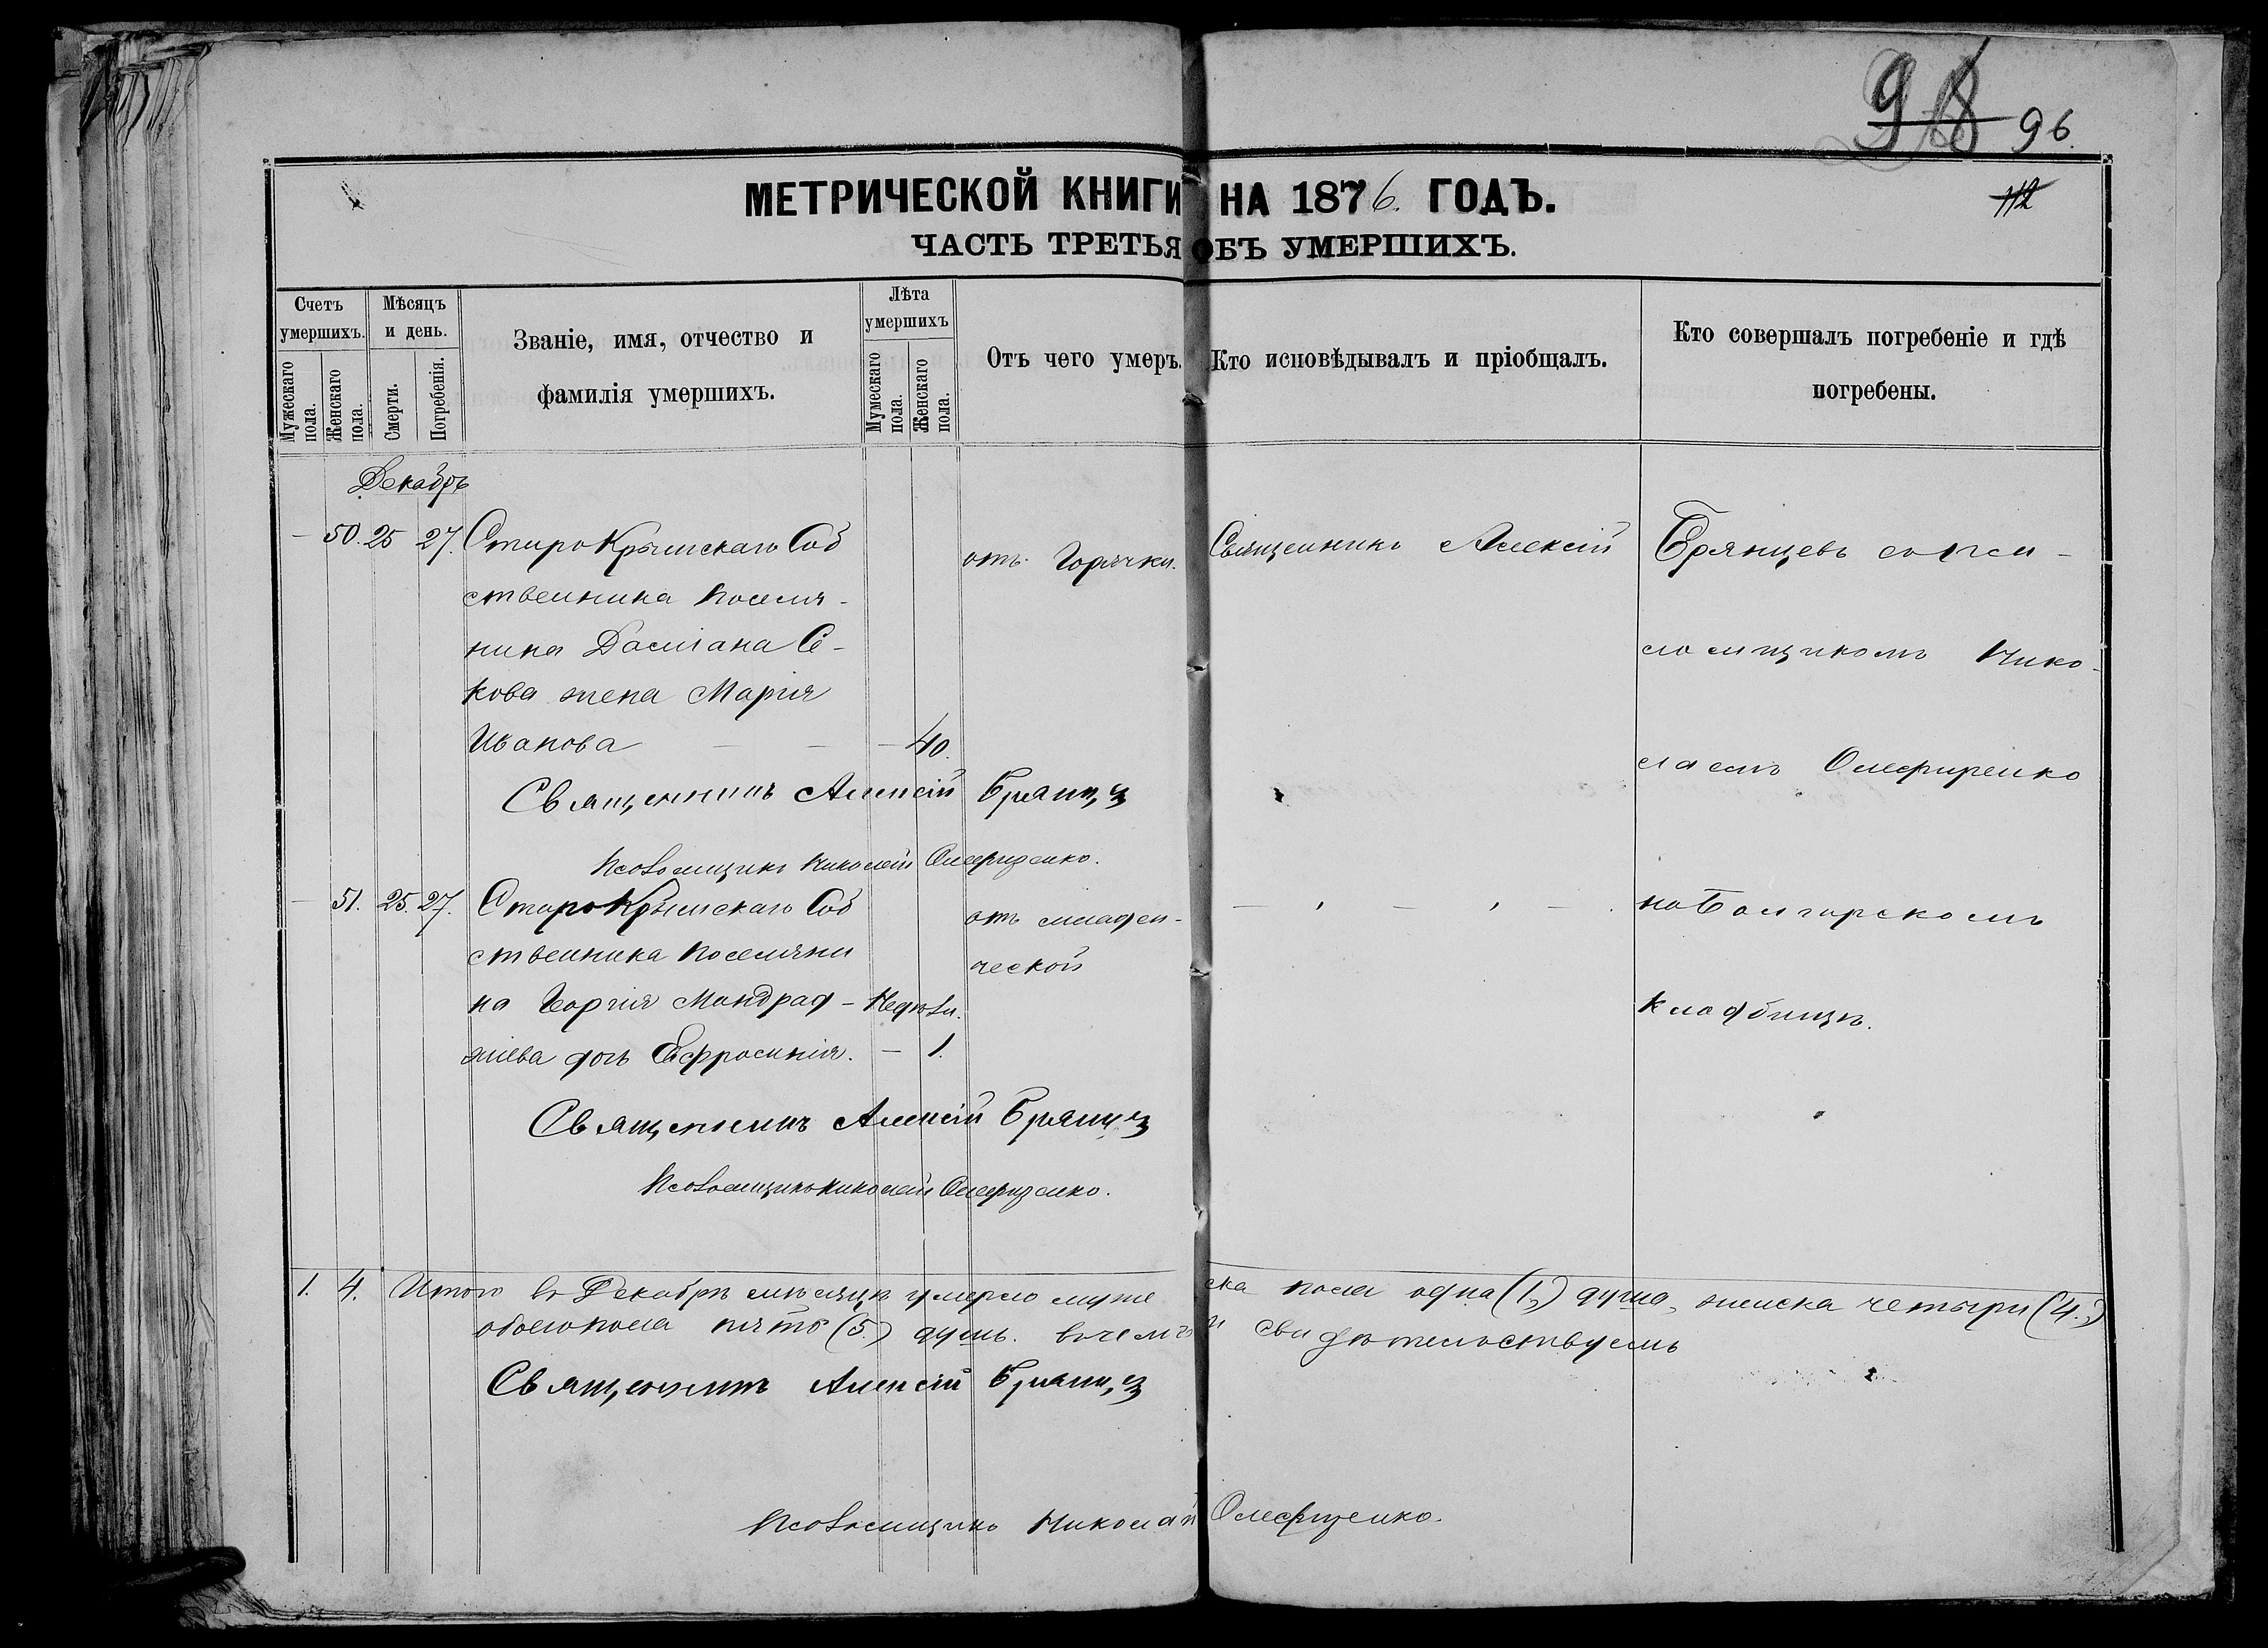 98 96.
112
МЕТРИЧЕСКОЙ КНИГИ НА 1876. ГОДЪ.
ЧАСТЬ ТРЕТЬЯ ОБЪ УМЕРШИХЪ.
Счетъ умершихъ.
Мужескаго пола.
Женскаго пола.
Мѣсяцъ и день.
Смерти.
Погребенія.
Званіе, имя, отчество и
фамилія умершихъ.
Лѣта умершихъ
Мумескаго пола.
Женскаго пола.
Отъ чего умеръ.
Кто исповѣдывалъ и пріобщалъ.
Кто совершалъ погребеніе и гдѣ
погребены.
Декабрь
— 50. 25 27. Старокрымскаго Соб
ственника Поселя-
нина Даміана
кова жена Марія
Иванова — — — 40.
отъ Горячки.
Священникъ Алексій
Брянцевъ съ пса-
ломщикомъ Нико-
лаемъ Олефиренко
Священникъ Алексій Брянцев
Псаломщикъ Николай Олефиренко.
— 51. 25. 27. Старокрымскаго Соб
ственника Поселяни
на Георгія Мандрад- Недѣли.
жіева дочь Евфросинія. — 1.
отъ младен-
ческой
на Болгарскомъ
кладбищѣ.
Священникъ Алексій Брянцев
Псаломщикъ Николай Олефиренко.
1. 4. Итого въ Декабрѣ мѣсяцѣ умерло муже ска пола одна (1,) душа, женска четыри (4.,)
обоего пола пять (5.) душъ. въ чемъ и свидѣтельствуемъ
Священникъ Алексій Брянцев
Псаломщикъ Николай Олефиренко.